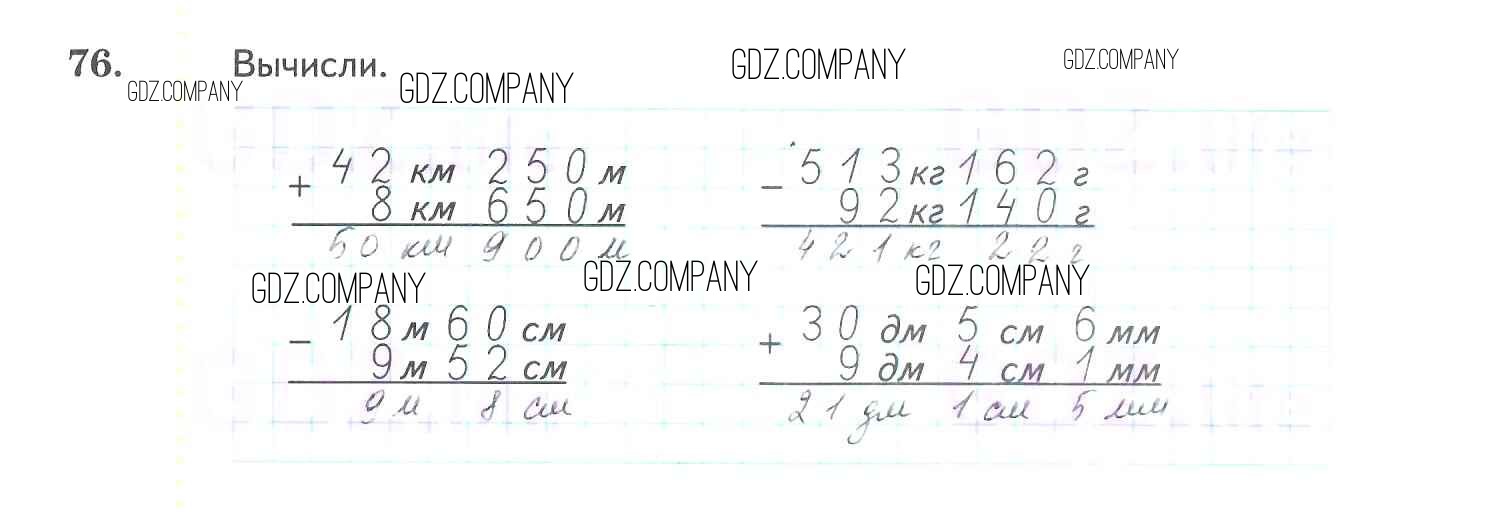 76. Вычисли.
GDZ.COMPANY GDZ.COMPANY GDZ.COMPANY GDZ.COMPANY
+ 42 км 250 м
8 км 650 м
50 км 900 м
- 513 кг 162 г
92 кг 140 г
421 кг 22 г
GDZ.COMPANY GDZ.COMPANY GDZ.COMPANY
- 18 м 60 см
9 м 52 см
9 м 8 см
+ 30 дм 5 см 6 мм
9 дм 4 см 1 мм
21 дм 1 см 5 мм